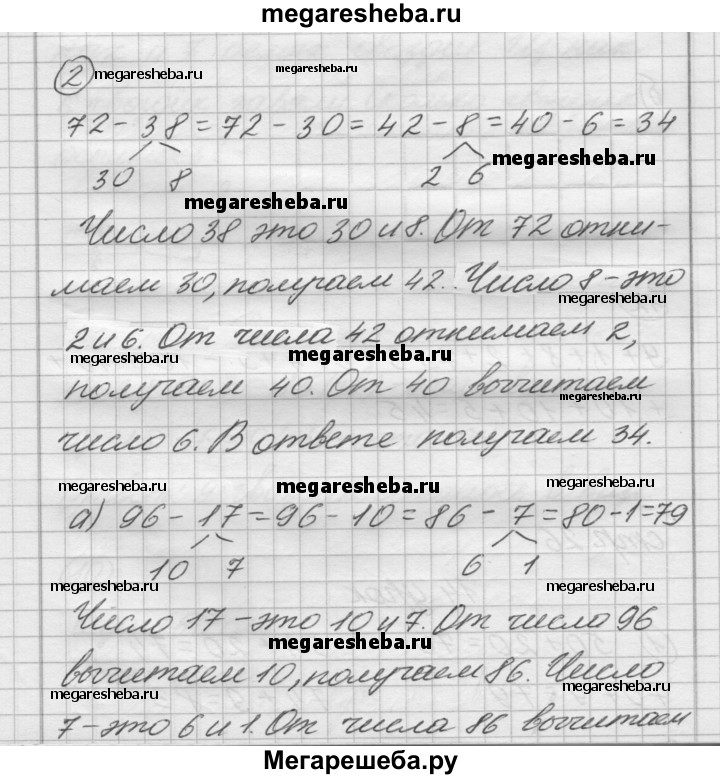 megaresheba.ru
2 megaresheba.ru megaresheba.ru
72 - 38 = 72 - 30 = 42 - 8 = 40 - 6 = 34
megaresheba.ru
30 8 2 6
megaresheba.ru
Число 38 это 30 и 8. От 72 отни-
маем 30, получаем 42. Число 8 - это
megaresheba.ru
2 и 6. От числа 42 отнимаем 2,
megaresheba.ru
получаем 40. От 40 вычитаем
megaresheba.ru
число 6. В ответе получаем 34.
megaresheba.ru megaresheba.ru megaresheba.ru
а) 96 - 17 = 96 - 10 = 86 - 7 = 80 - 1 = 79
10 7 6 1
megaresheba.ru megaresheba.ru
Число 17 - это 10 и 7. От числа 96
megaresheba.ru
вычитаем 10, получаем 86. Число
megaresheba.ru megaresheba.ru
7 - это 6 и 1. От числа 86 вычитаем
Мегарешеба.ру